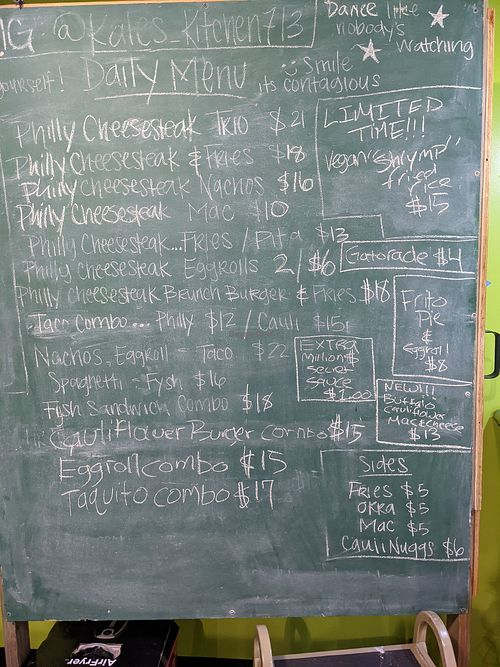 IG: @Kales_Kitchen713
Dance like
nobody's
watching
yourself!
Daily Menu
Smile
its contagious
Philly Cheesesteak Trio $21
Philly Cheesesteak & Fries $18
Philly Cheesesteak Nachos $16
Philly Cheesesteak Mac $10
Philly Cheesesteak...Fries / Pita $13
Philly Cheesesteak Eggrolls 2/$6
Philly cheesesteak Brunch Burger & Fries $18
Taco Combo... Philly $12 / Cauli $15
Nachos, Eggroll = Taco $22
Spaghetti = Fysh $16
Fysh Sandwich Combo $18
Cauliflower Burger Combo $15
Eggroll combo $15
Taquito combo $17
LIMITED
TIME!!!
Vegan "Shrymp"
fried
rice
$15
Gatorade $4
Frito
Pie
&
Eggroll
$8
EXTRA
Million $
secret
sauce
$1.00
NEW!!!
Buffalo
Cauliflower
Mac & Cheese
$13
Sides
Fries $5
Okra $5
Mac $5
Cauli Nuggs $6
AirFryer